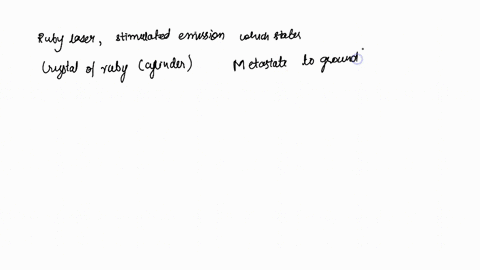 Ruby laser, stimulated emission which states
Crystal of ruby (cylinder) Metastate to ground